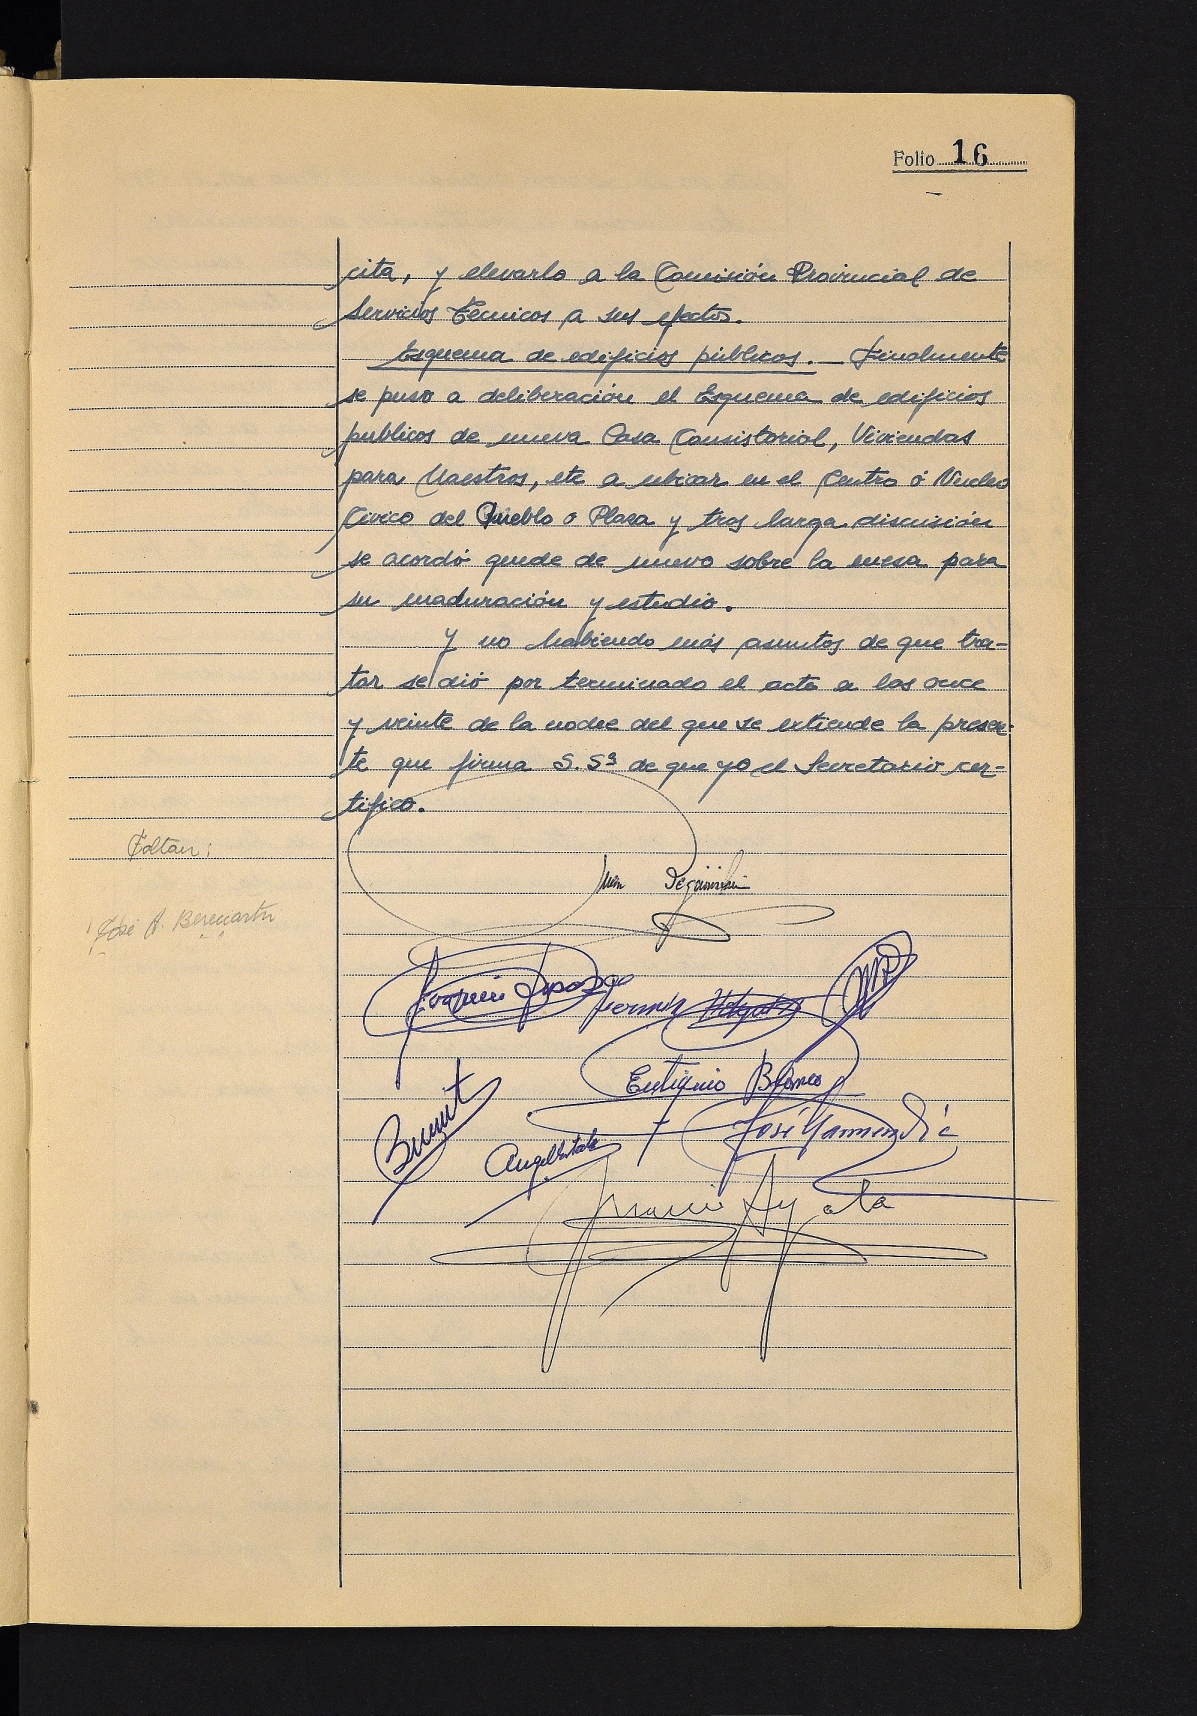 Folio 16
cita, y elevarlo a la Comisión Provincial de
Servicios Técnicos a sus efectos.
Esquema de edificios públicos. — Finalmente
se puso a deliberación el Esquema de edificios
publicos de nueva Casa Consistorial, Viviendas
para Maestros, etc a ubicar en el Centro ó Nucleo
Civico del Pueblo o Plaza y tras larga discusión
se acordó quede de nuevo sobre la mesa para
su maduración y estudio.
Y no habiendo más asuntos de que tra-
tar se dió por terminado el acto a las once
y veinte de la noche del que se extiende la presen-
te que firma S.Sª de que yo el Secretario cer-
tifico.
Faltan:
Juan
José A.
Joaquin
Fermin
Eutiquio Blanco
José
Ayala